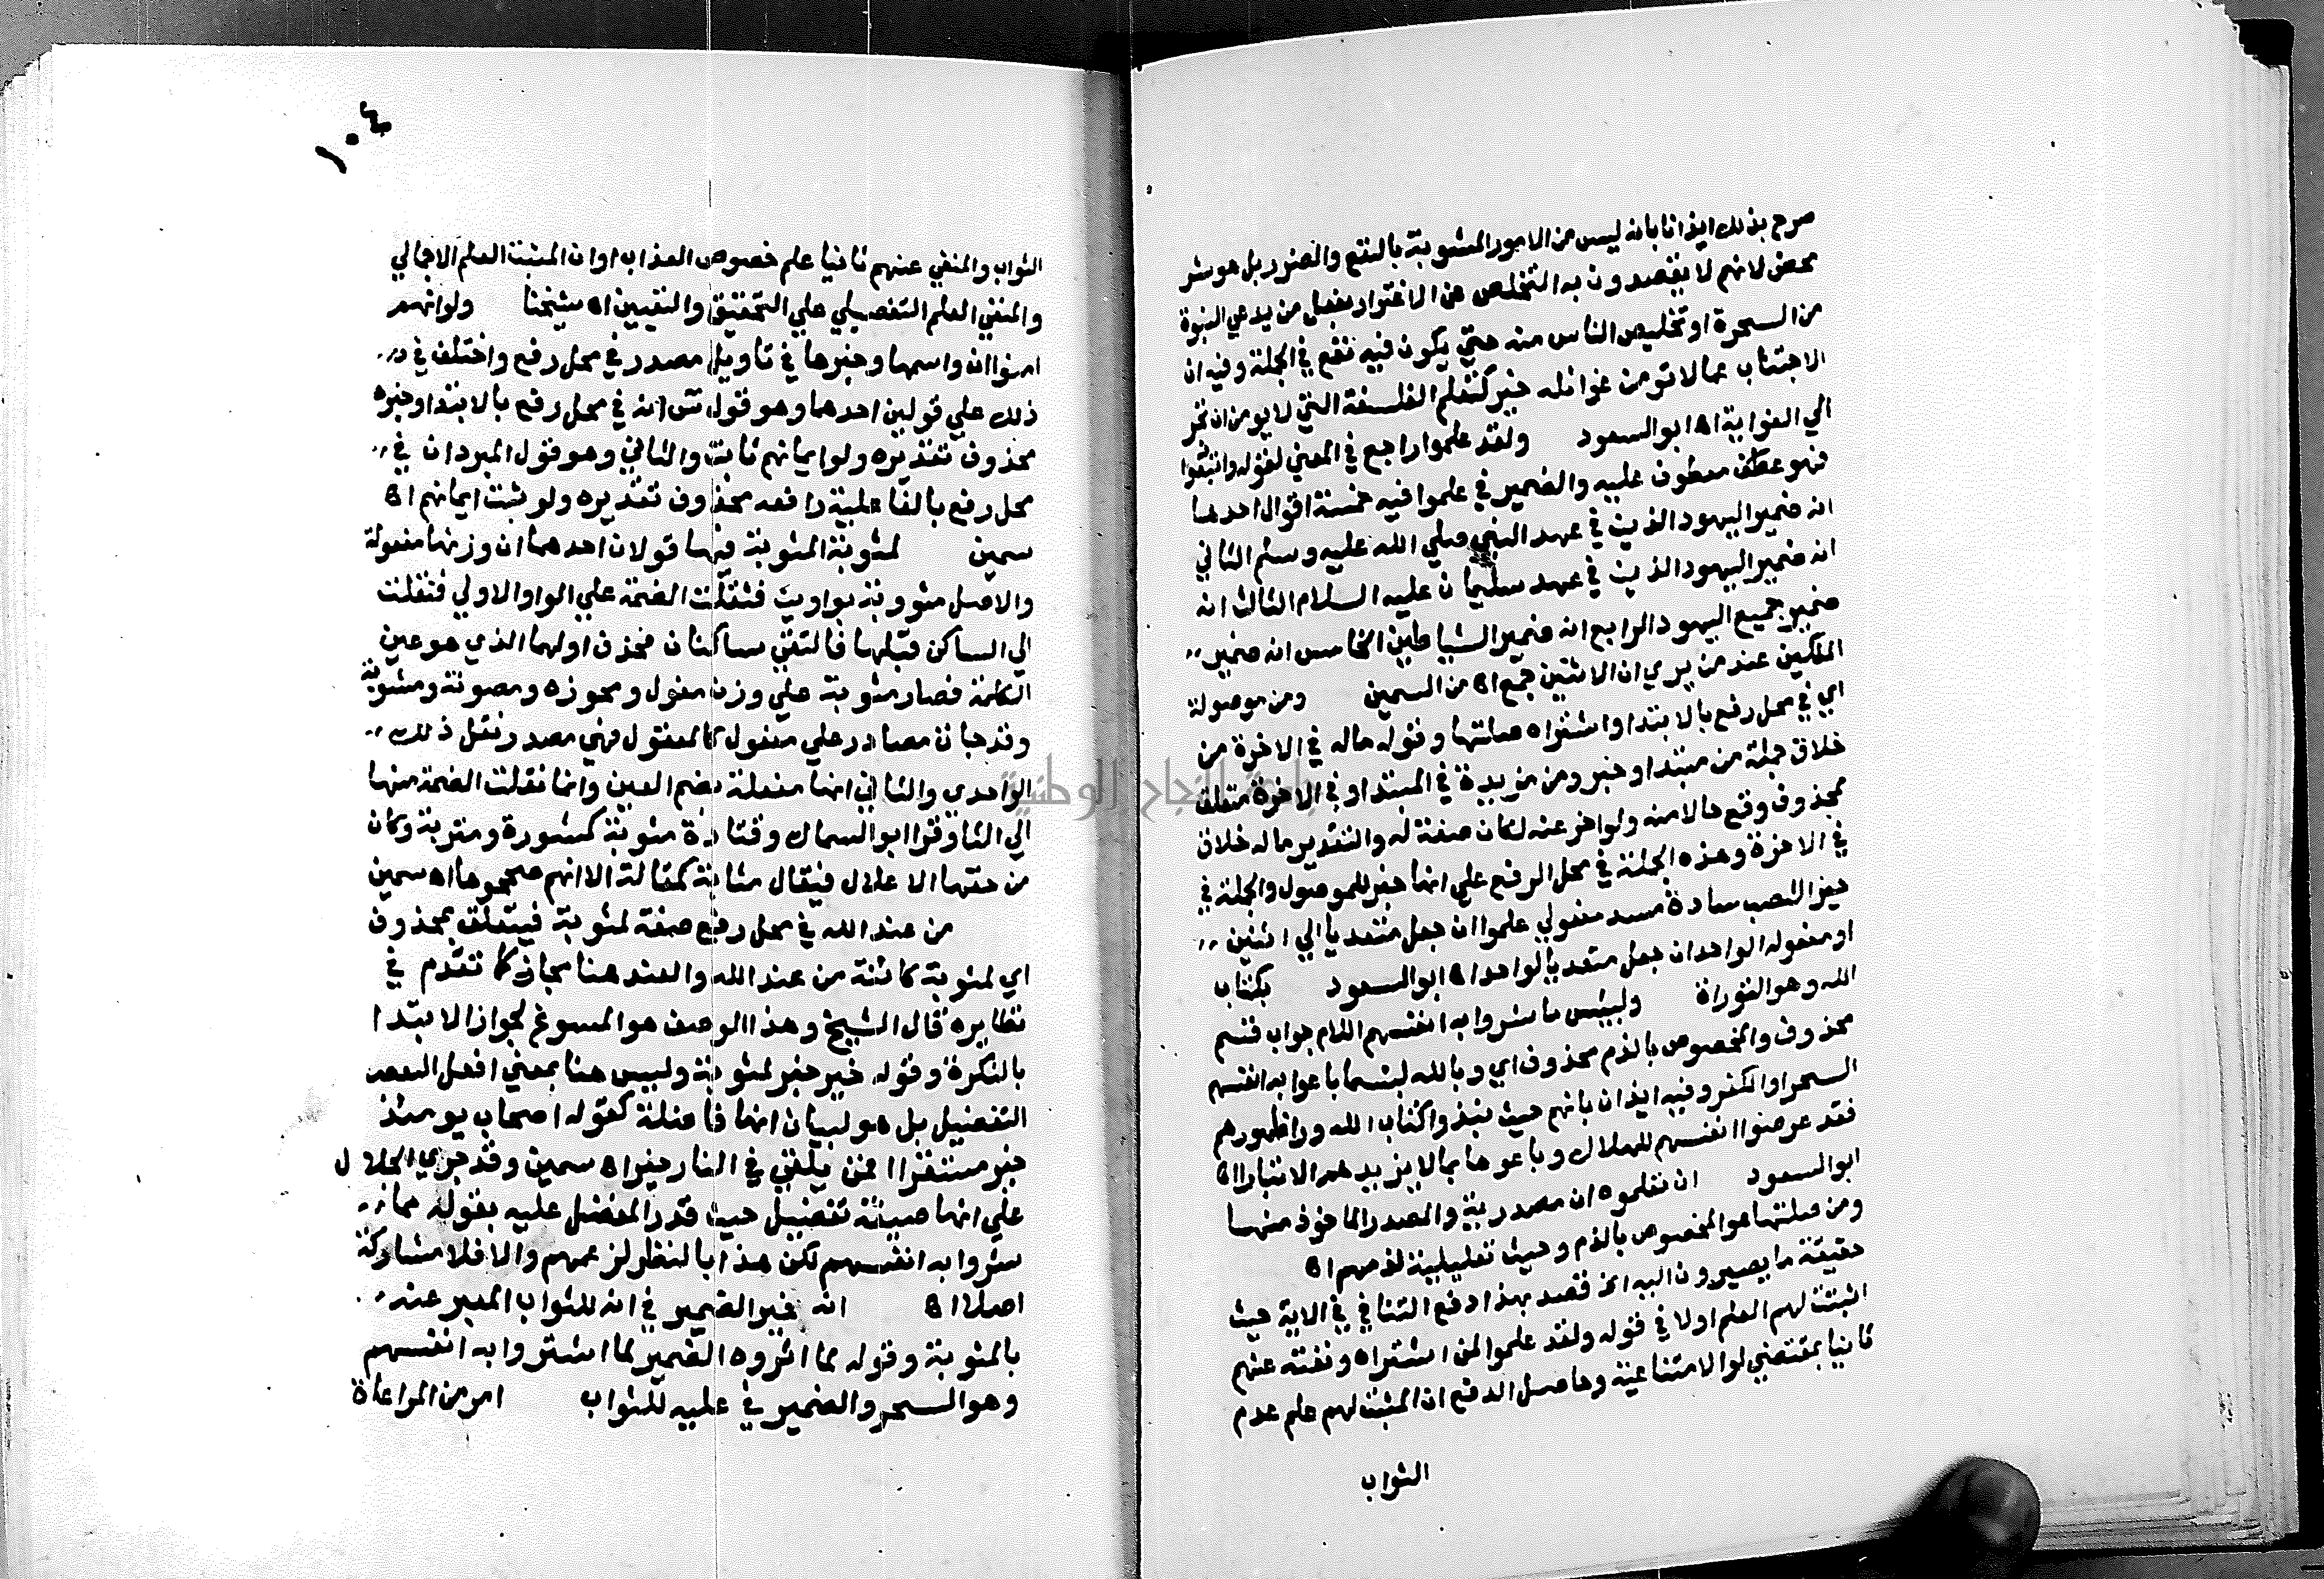 صرح بذلك ايذانا بانه ليس من الامور المشوبة بالنفع والضرر بل هو شر
محض لانهم لا يقصدون به التخلص عن الاغترار بفعل من يدعي النبوة
من السحرة او تخليص الناس منه حتي يكون فيه نفع في الجملة وفيه ان
الاجتناب عما لا تؤمن غوائله خير كتعلم الفلسفة التي لا يومن ان تجر
الي الغواية اه ابو السعود ولقد علموا راجع في المعني لقوله واتبعوا
فهو عطف معطوف عليه والضمير في علموا فيه خمسة اقوال احدها
انه ضمير اليهود الذين في عهد النبي صلي الله عليه وسلم الثاني
انه ضمير اليهود الذين في عهد سليمان عليه السلام الثالث انه
ضمير جميع اليهود الرابع انه ضمير الشياطين الخامس انه ضمير
الملكين عند من يري ان الاثنين جمع اه من السمين ومن موصولة
اي في محل رفع بالابتدا واشتراه صلتها وقوله ماله في الاخرة من
خلاق جملة من مبتدا وخبر ومن مزيدة في المبتدا وفي الاخرة متعلق
بمحذوف وقع حالا منه ولو اخر عنه لكان صفة له والتقدير ماله خلاق
في الاخرة وهذه الجملة في محل الرفع علي انها خبر للموصول والجملة في
حيز النصب سادة مسد مفعولي علموا ان جعل متعديا الي اثنين
او مفعوله الواحد ان جعل متعديا لواحد اه ابو السعود بكتاب
الله وهو التوراة ولبيس ما شروا به انفسهم اللام جواب قسم
محذوف والمخصوص بالذم محذوف اي وبالله لبئسما باعوا به انفسهم
السحر او الكفر وفيه ايذان بانهم حيث نبذوا كتاب الله ورا ظهورهم
فقد عرضوا انفسهم للهلاك وباعوها بما لا يزيدهم الا تبارا اه
ابو السعود ان تعلموه ان مصدرية والمصدر الماخوذ منها
ومن صلتها هو المخصوص بالذم وحيث تعليلية لذمهم اه
حقيقة ما يصيرون اليه الخ قصد بهذا دفع التنافي في الاية حيث
اثبتت لهم العلم اولا في قوله ولقد علموا لمن اشتراه ونفته عنهم
ثانيا بمقتضي لو الامتناعية وحاصل الدفع ان المثبت لهم علم عدم
الثواب
١٠٤
الثواب والمنفي عنهم ثانيا علم خصوص العذاب او ان المثبت العلم الاجمالي
والمنفي العلم التفصيلي علي التحقيق والتعيين اه شيخنا ولو انهم
امنوا ان واسمها وخبرها في تاويل مصدر في محل رفع واختلف في
ذلك علي قولين احدهما وهو قول س انه في محل رفع بالابتدا وخبره
محذوف تقديره ولو ايمانهم ثابت والثاني وهو قول المبرد ان في
محل رفع بالفاعلية رافعه محذوف تقديره ولو ثبت ايمانهم اه
سمين لمثوبة المثوبة فيها قولان احدهما ان وزنها مفعولة
والاصل مثووبة بواوين فثقلت الضمة علي الواو الاولي فنقلت
الي الساكن قبلها فالتقي ساكنان فحذف اولهما الذي هو عين
الكلمة فصار مثوبة علي وزن مفول ومحوزه ومصونة ومشوبة
وقد جات مصادر علي مفعول كالمعقول فهي مصدر نقل ذلك
الواحدي والثاني انها مفعلة بضم العين وانما نقلت الضمة منها
الي الثا وقرا ابو السمال وقتادة مثوبة كمشورة ومتربة وكان
من حقها الاعلال فيقال مثابة كمقالة الا انهم صححوها اه سمين
من عند الله في محل رفع صفة لمثوبة فيتعلق بمحذوف
اي لمثوبة كائنة من عند الله والعند هنا مجاز كما تقدم في
نظايره قال الشيخ وهذا الوصف هو المسوغ لجواز الابتدا
بالنكرة وقوله خير خبر لمثوبة وليس هنا بمعني افعل التفضيل
التفضيل بل هو لبيان انها فاضلة كقوله اصحاب يومئذ
خير مستقرا افمن يلقي في النار خير اه سمين وقد جري الجلال
علي انها صيغة تفضيل حيث قدر المفضل عليه بقوله مما
شروا به انفسهم لكن هذا بالنظر لزعمهم والا فلا مشاركة
اصلا اه انه خير الضمير في انه للثواب المعبر عنه
بالمثوبة وقوله لما اثروه الضمير لما اشتروا به انفسهم
وهو السحر والضمير في عليه للثواب امر من المراعاة
جامعة النجاح الوطنية